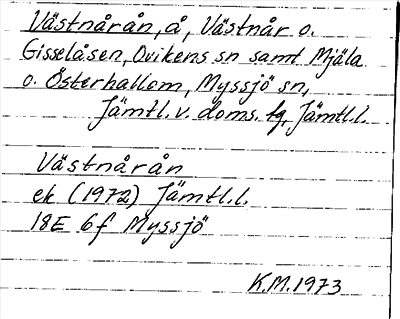 Västnårån, å, Västnår o.
Gisselåsen, Ovikens sn samt Mjäla
o. Österhallom, Myssjö sn,
Jämtl. v. doms. tg, Jämtl.l.
Västnårån
ek (1972) Jämtl.l.
18E 6f Myssjö
K.M.1973